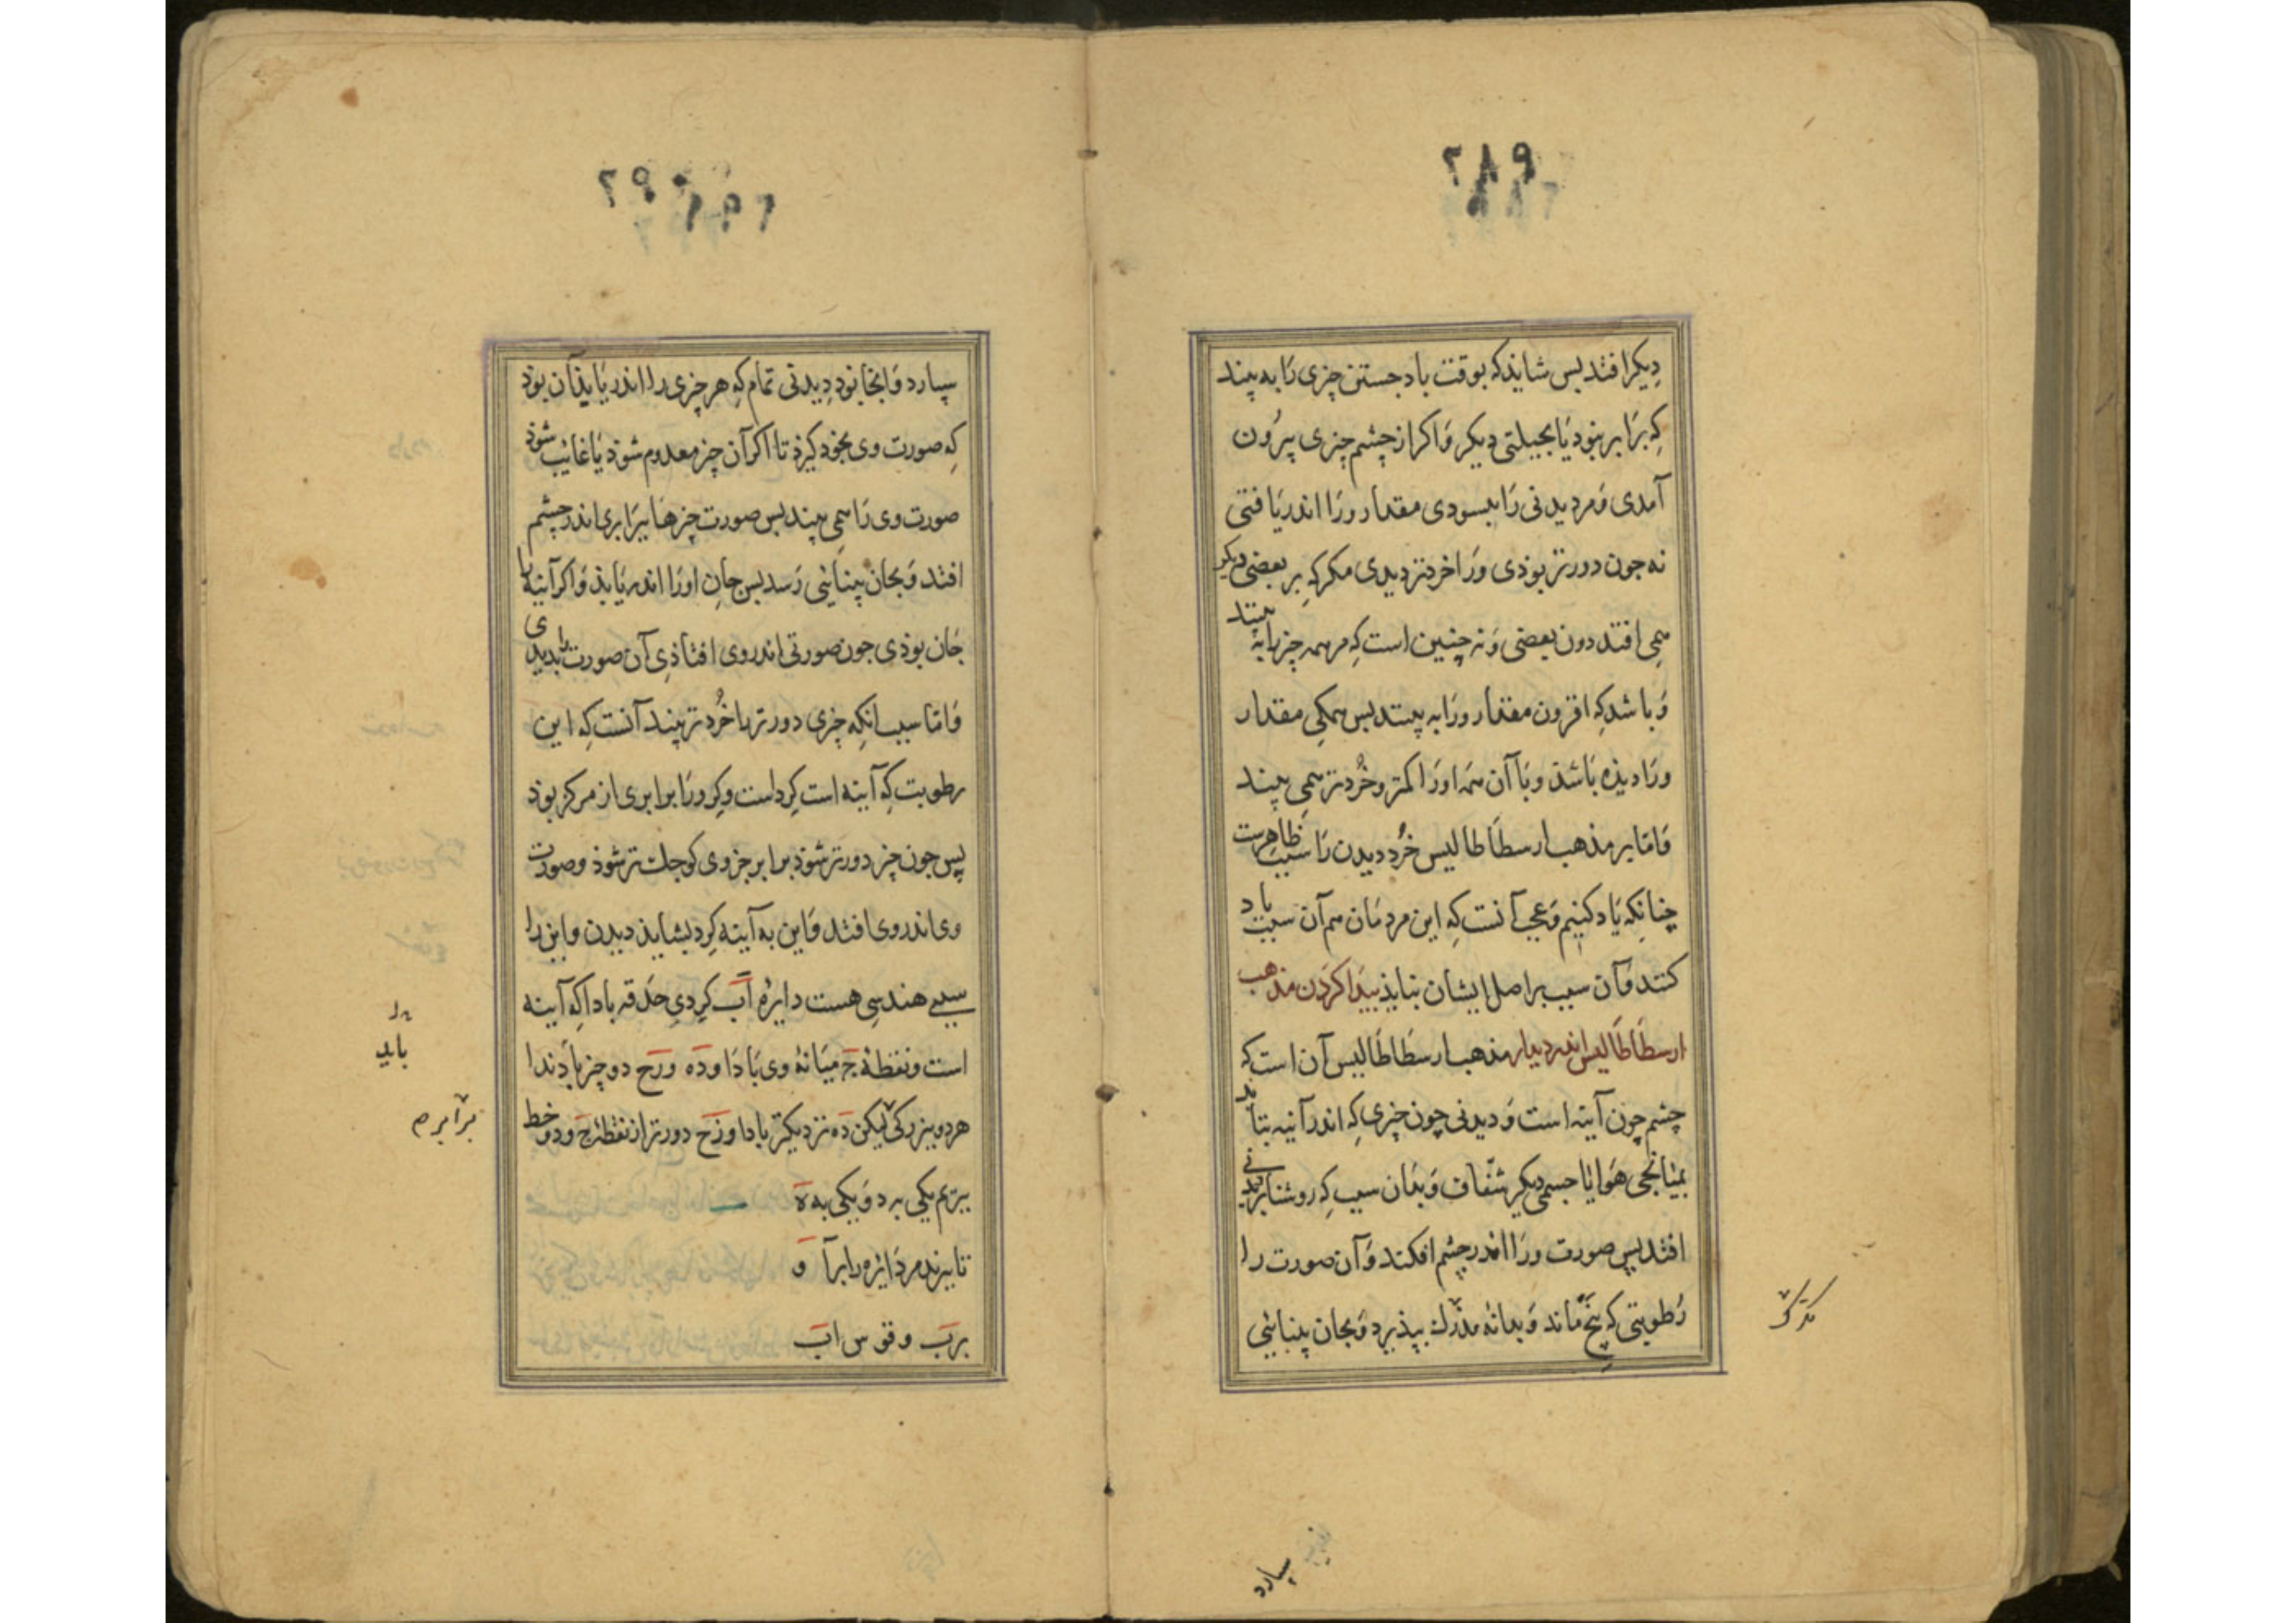 ۲۸۹
دیکر افتد بس شاید که بوقت باد جستن چزی رَا به بیند
کِه برَابر بنود یَا بحیلتی دیکر وَ اکر از چشم چیزی بیرُون
آمدی وَ مر دیدنی رَا ببسودی مقدار ورَا اندر یَافتی
نه جون دورتر بوذی ورَا خردتر دیدی مکر کِه بر بعضی دیکر
همی افتد دون بعضی وَ نه چنین است کِه مر همه چزها به بیند
وَ باشد کِه افزون مقدار ورَا به بیند بس همکِی مقدار
ورَا دیذه بَاشد و بَا آن همه اورَا کمتر و خُردتر همی بیند
وَ امّا بر مذهب ارسطَاطالیس خُرد دیدن رَا سبب ظاهرست
چنانکِه یَاد کنیم وَ عجب آنست کِه این مردمَان هم آن سبب یاد
کنند وَ آن سبب بر اصل ایشان بنایذ پیدَا کردَن مذهب
ارسطَاطَالیس اندر دیدار مذهب ارسَطَاطَالیس آن است کِه
چشم چون آینه است وَ دیدنی چون چیزی کِه اندر آینه بتابد
بمیَانجی هوَا یَا جسمی دیکر شفّاف وَ بدَان سبب کِه روشنایی بر دیدنی
افتد پس صورت ورَا اندر چشم افکند وَ آن صورت را
رُطوبتی که یخ مَاند وَ بدانهٔ مدرک بپذیرد وَ بجان بینایی
تکرک
سپارد
۲۹۰
سپارد وَ آنجا بود دِیدنی تمام کِه هر چزی را اندر یَابذ آن بوَد
کِه صورت وی بخود کیرد تا اکر آن چز معدوم شود یَا غائب شود
صورت وی رَا همی بیند بس صورت چزها برَابری اندر چشم
افتد وَ بجان بینایی رَسد بس جانِ او رَا اندر یَابذ وَ اکر آینه را
جَان بوذی جون صورتی اندر وی افتاذی آن صورت را بدیدی
وَ امّا سبب انکِه چزی دورتر را خُردتر بیند آنست کِه این
رطوبت کِه آینه است کِرد است وکِرد ورَا برابری از مرکز بود
پس جون چز دورتر شود برابر جزوی کوجک تر شود و صورت
وی اندر وی افتد وَ این به آینه کِرد بشاید دیدن و این را
سببی هندسِی هست دایرهٔ اَب کِردیِ حَدقه باد اکِه آینه
است و نقطهٔ ج میَانهٔ وی بَادَا و دَه و زَح دو چز بادند ا
هر دو ببزرکی لیکن دَه نزدیکتر بادا و زَح دورتر از نقطهٔ ج و دو خط
ببرَیم یکی بد وَ یکی به هَ
تا ببرند مر دَائره را بر آ و
بر بَ و قوس ابَ
را
باید
برابرم